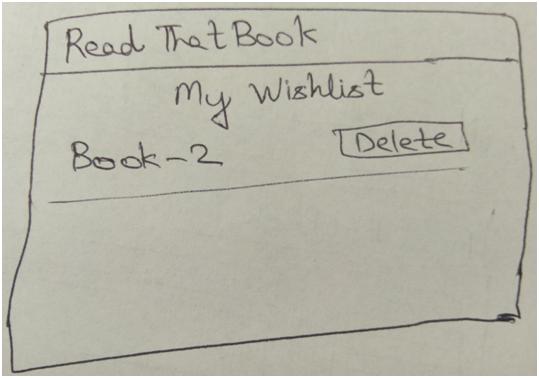 Read That Book
My Wishlist
Book-2
Delete